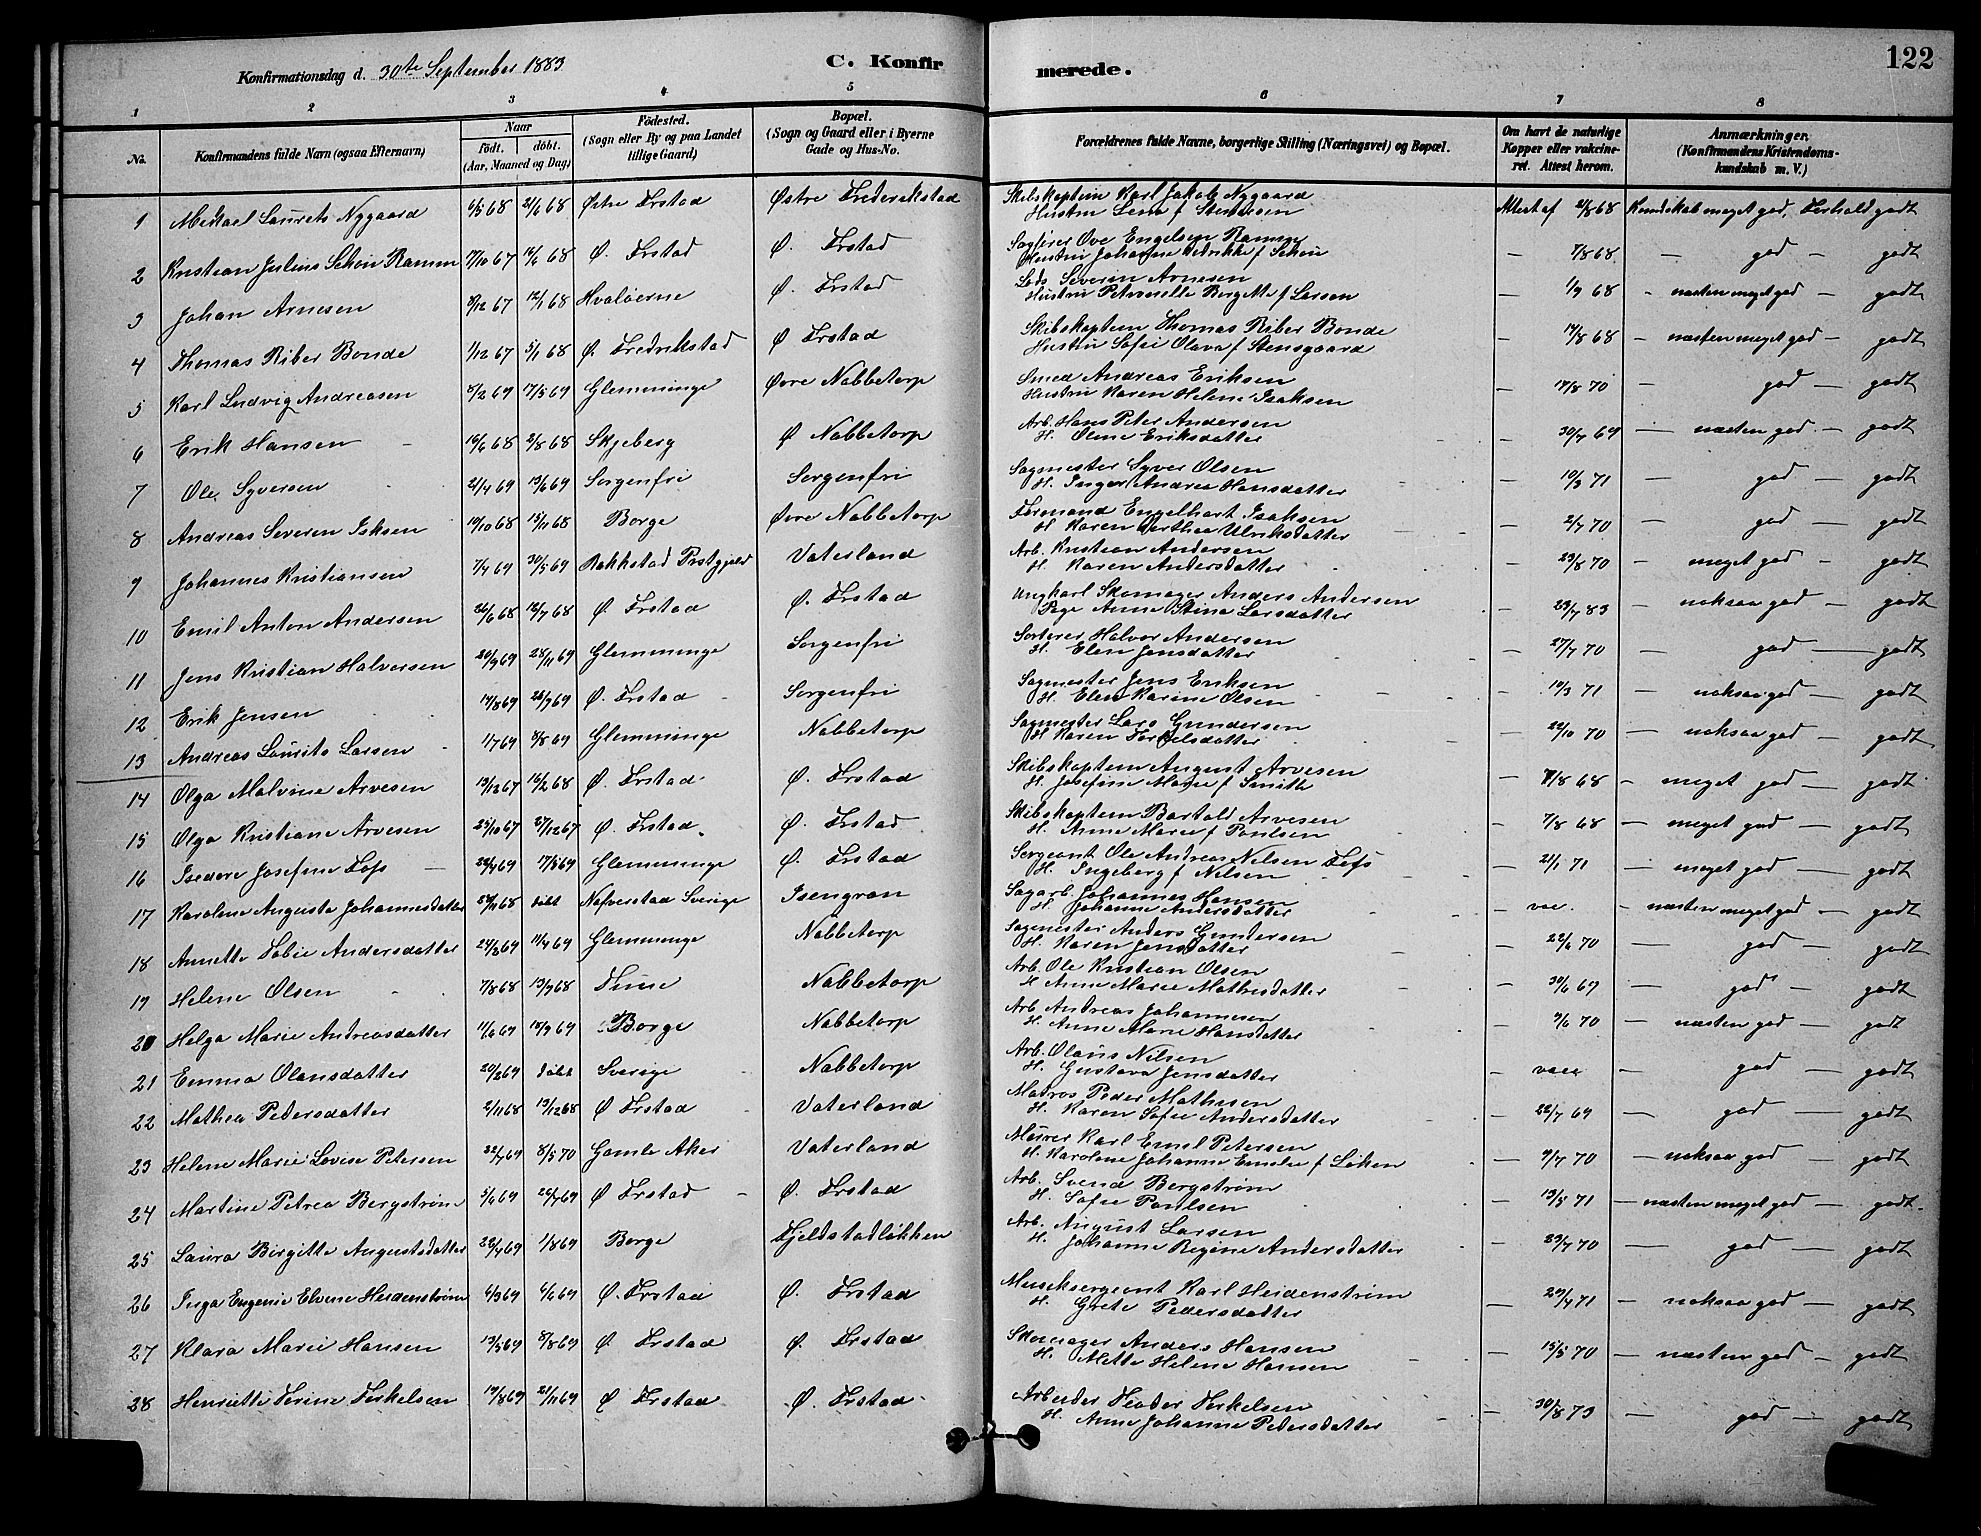 Konfirmationsdag d. 30te September 1883
C. Konfirmerede.
122
1 2 3 4 5 6 7 8
No. | Konfirmandens fulde Navn (ogsaa Efternavn) | Naar födt. döbt. (Aar, Maaned og Dag) | Födested. (Sogn eller By og paa Landet tillige Gaard) | Bopæl. (Sogn og Gaard eller i Byerne Gade og Hus-No. | Forældrenes fulde Navne, borgerlige Stilling (Næringsvei) og Bopæl. | Om havt de naturlige Kopper eller vakcineret. Attest herom. | Anmærkninger. (Konfirmandens Kristendomskundskab m. V.)
1 Mikael Laurets Nygaard 6/5 68 21/6 68 Østre Frstad Østre Frederikstad Skibskaptein Karl Jakob Nygaard Hustru Lena f Stendsen Attest af 2/8 68 Kundskab meget god, Forhold godt
2 Kristian Julius Schøn Ramm 7/10 67 10/4 68 Ø. Frstad Ø. Frstad Sagfører Ove Engelsen Ramm Hustru Johanne Hedrikke f Schøn — 7/8 68. — god — godt
3 Johan Arnesen 3/12 67 12/1 68 Hvaløerne Ø. Frstad Lods Severin Arnesen Hustru Petronelle Bergette f Larsen — 1/9 68 - næsten meget god — godt
4 Thomas Riber Bonde 1/12 67 5/1 68 Ø. Fredrikstad Ø Frstad Skibskaptein Thomas Riber Bonde Hustru Sofie Olava f Stensgaard — 17/8 68 - næsten meget god — godt
5 Karl Ludvig Andreasen 8/2 69 17/5 69 Glemminge Øvre Nabbetorp Smed Andreas Eriksen Hustru Karen Helene Isaksen — 17/8 70 — god — godt
6 Erik Hansen 10/6 68 2/8 68 Skjeberg Ø Nabbetorp Arb. Hans Peter Andersen H. Oline Eriksdatter — 30/7 69 — næsten god — godt
7 Ole Syversen 21/4 69 13/6 69 Sorgenfri Sorgenfri Sagmester Syver Olsen H. Inger Andrea Hansdatter — 10/3 71 — god — godt
8 Andreas Severen Isksen 10/10 68 15/11 68 Borge Øvre Nabbetorp Formand Engelhart Isaksen H Karen Berthea Ulriksdatter — 2/7 70 — god — godt
9 Johannes Kristiansen 7/4 69 30/5 69 Rakkstad Prstgjeld Vaterland Arb. Kristian Andersen H. Karen Andersdatter — 23/8 70 — meget god — godt
10 Emil Anton Andersen 26/6 68 12/7 68 Ø. Frstad Ø. Frstad Ungkarl Skomager Anders Andersen Pige Anne Stina Larsdatter — 23/7 83 — noksaa god — godt
11 Jens Kristian Halvorsen 20/9 69 28/11 69 Glemminge Sorgenfri Sorterer Halvor Andersen H. Elen Jensdatter — 27/7 70 — god — godt
12 Erik Jensen 14/8 69 26/9 69 Ø. Frstad Sorgenfri Sagmester Jens Eriksen H. Elen Karine Olsen — 10/3 71 — noksaa god — godt
13 Andreas Laurits Larsen 1/7 69 8/8 69 Glemminge Nabbetorp Sagmester Lars Gundersen H Karen Torkelsdatter — 22/10 70 — noksaa god — godt
14 Olga Malvine Arvesen 13/12 67 16/2 68 Ø. Frstad Ø. Frstad Skibskaptein August Arvesen H. Josefine Marie f Smith — 7/8 68 — meget god — godt
15 Olga Kristiane Arvesen 25/10 67 27/12 67 Ø. Frstad Ø. Frstad Skibskaptem Bartold Arvesen H. Anne Marie f Poulsen — 7/8 68 — meget god — godt
16 Isedore Josefine Foss 22/4 69 17/5 69 Glemminge Ø. Frstad Sergeant Ole Andreas Nilsen Foss H. Ingeberg f Nilsen — 21/1 71 — meget god — godt
17 Karolene Augusta Johannesdatter 28/11 68 døbt Nafverstad Sverige Isengran Sagarb. Johannes Hansen H. Johanne Andersdatter — vac. — næsten meget god — godt
18 Annette Tobie Andersdatter 24/2 69 11/4 69 Glemminge Nabbetorp Sagmester Anders Gundersen H. Karen Jensdatter — 22/6 70 — god — godt
19 Helene Olsen 7/8 68 13/9 68 Tune Nabbetorp Arb. Ole Kristian Olsen H Anne Marie Mathisdatter — 30/6 69 — god — godt
20 Helga Marie Andreasdatter 11/6 69 18/9 69 Borge Nabbetorp Arb Andreas Johannesen H. Anne Marie Hansdatter — 9/6 70 — næsten god — godt
21 Emma Olausdatter 20/2 69 døbt Sverige Nabbetorp Arb. Olaus Nilsen H. Gustava Jensdatter — vacc — god — godt
22 Mathea Pedersdatter 2/11 68 13/12 68 Ø Frstad Vaterland Matros Peder Mathisen H. Karen Sofie Andersdatter — 22/7 69 — god — godt
23 Helene Marie Lovise Petersen 22/7 69 8/5 70 Gamle Aker Vaterland Murer Karl Emil Petersen H. Karolene Johanne Emilie f Løken — 9/7 70 — noksaa god — godt
24 Martine Petrea Bergstrøm 5/6 69 26/7 69 Ø Frstad Ø. Frstad Arb. Svend Bergstrøm H. Sofie Poulsen — 13/5 71 — næsten meget god — godt.
25 Laura Birgitte Augustsdatter 22/4 69 1/8 69 Borge Fjeldstadløkken Arb. August Larsen H. Johanne Regine Andersdatter — 23/7 70 — god — godt
26 Inga Eugenie Elvine Heidenstrøm 4/3 69 4/6 69 Ø. Frstad Ø. Frstad Musiksergeant Karl Heidenstrøm H. Grete Pedersdatter — 29/4 71 — noksaa god — godt
27 Klara Marie Hansen 13/5 69 8/8 69 Ø Frstad Ø. Frstad Skomager Anders Hansen H. Mette Helene Hansen — 15/5 70 — næsten god — godt
28 Henriette Terine Terkelsen 19/8 69 21/11 69 Ø Frstad Ø. Frstad Arbeider Teodor Terkelsen H. Anne Johanne Pedersdatter — 30/8 73 — god — godt